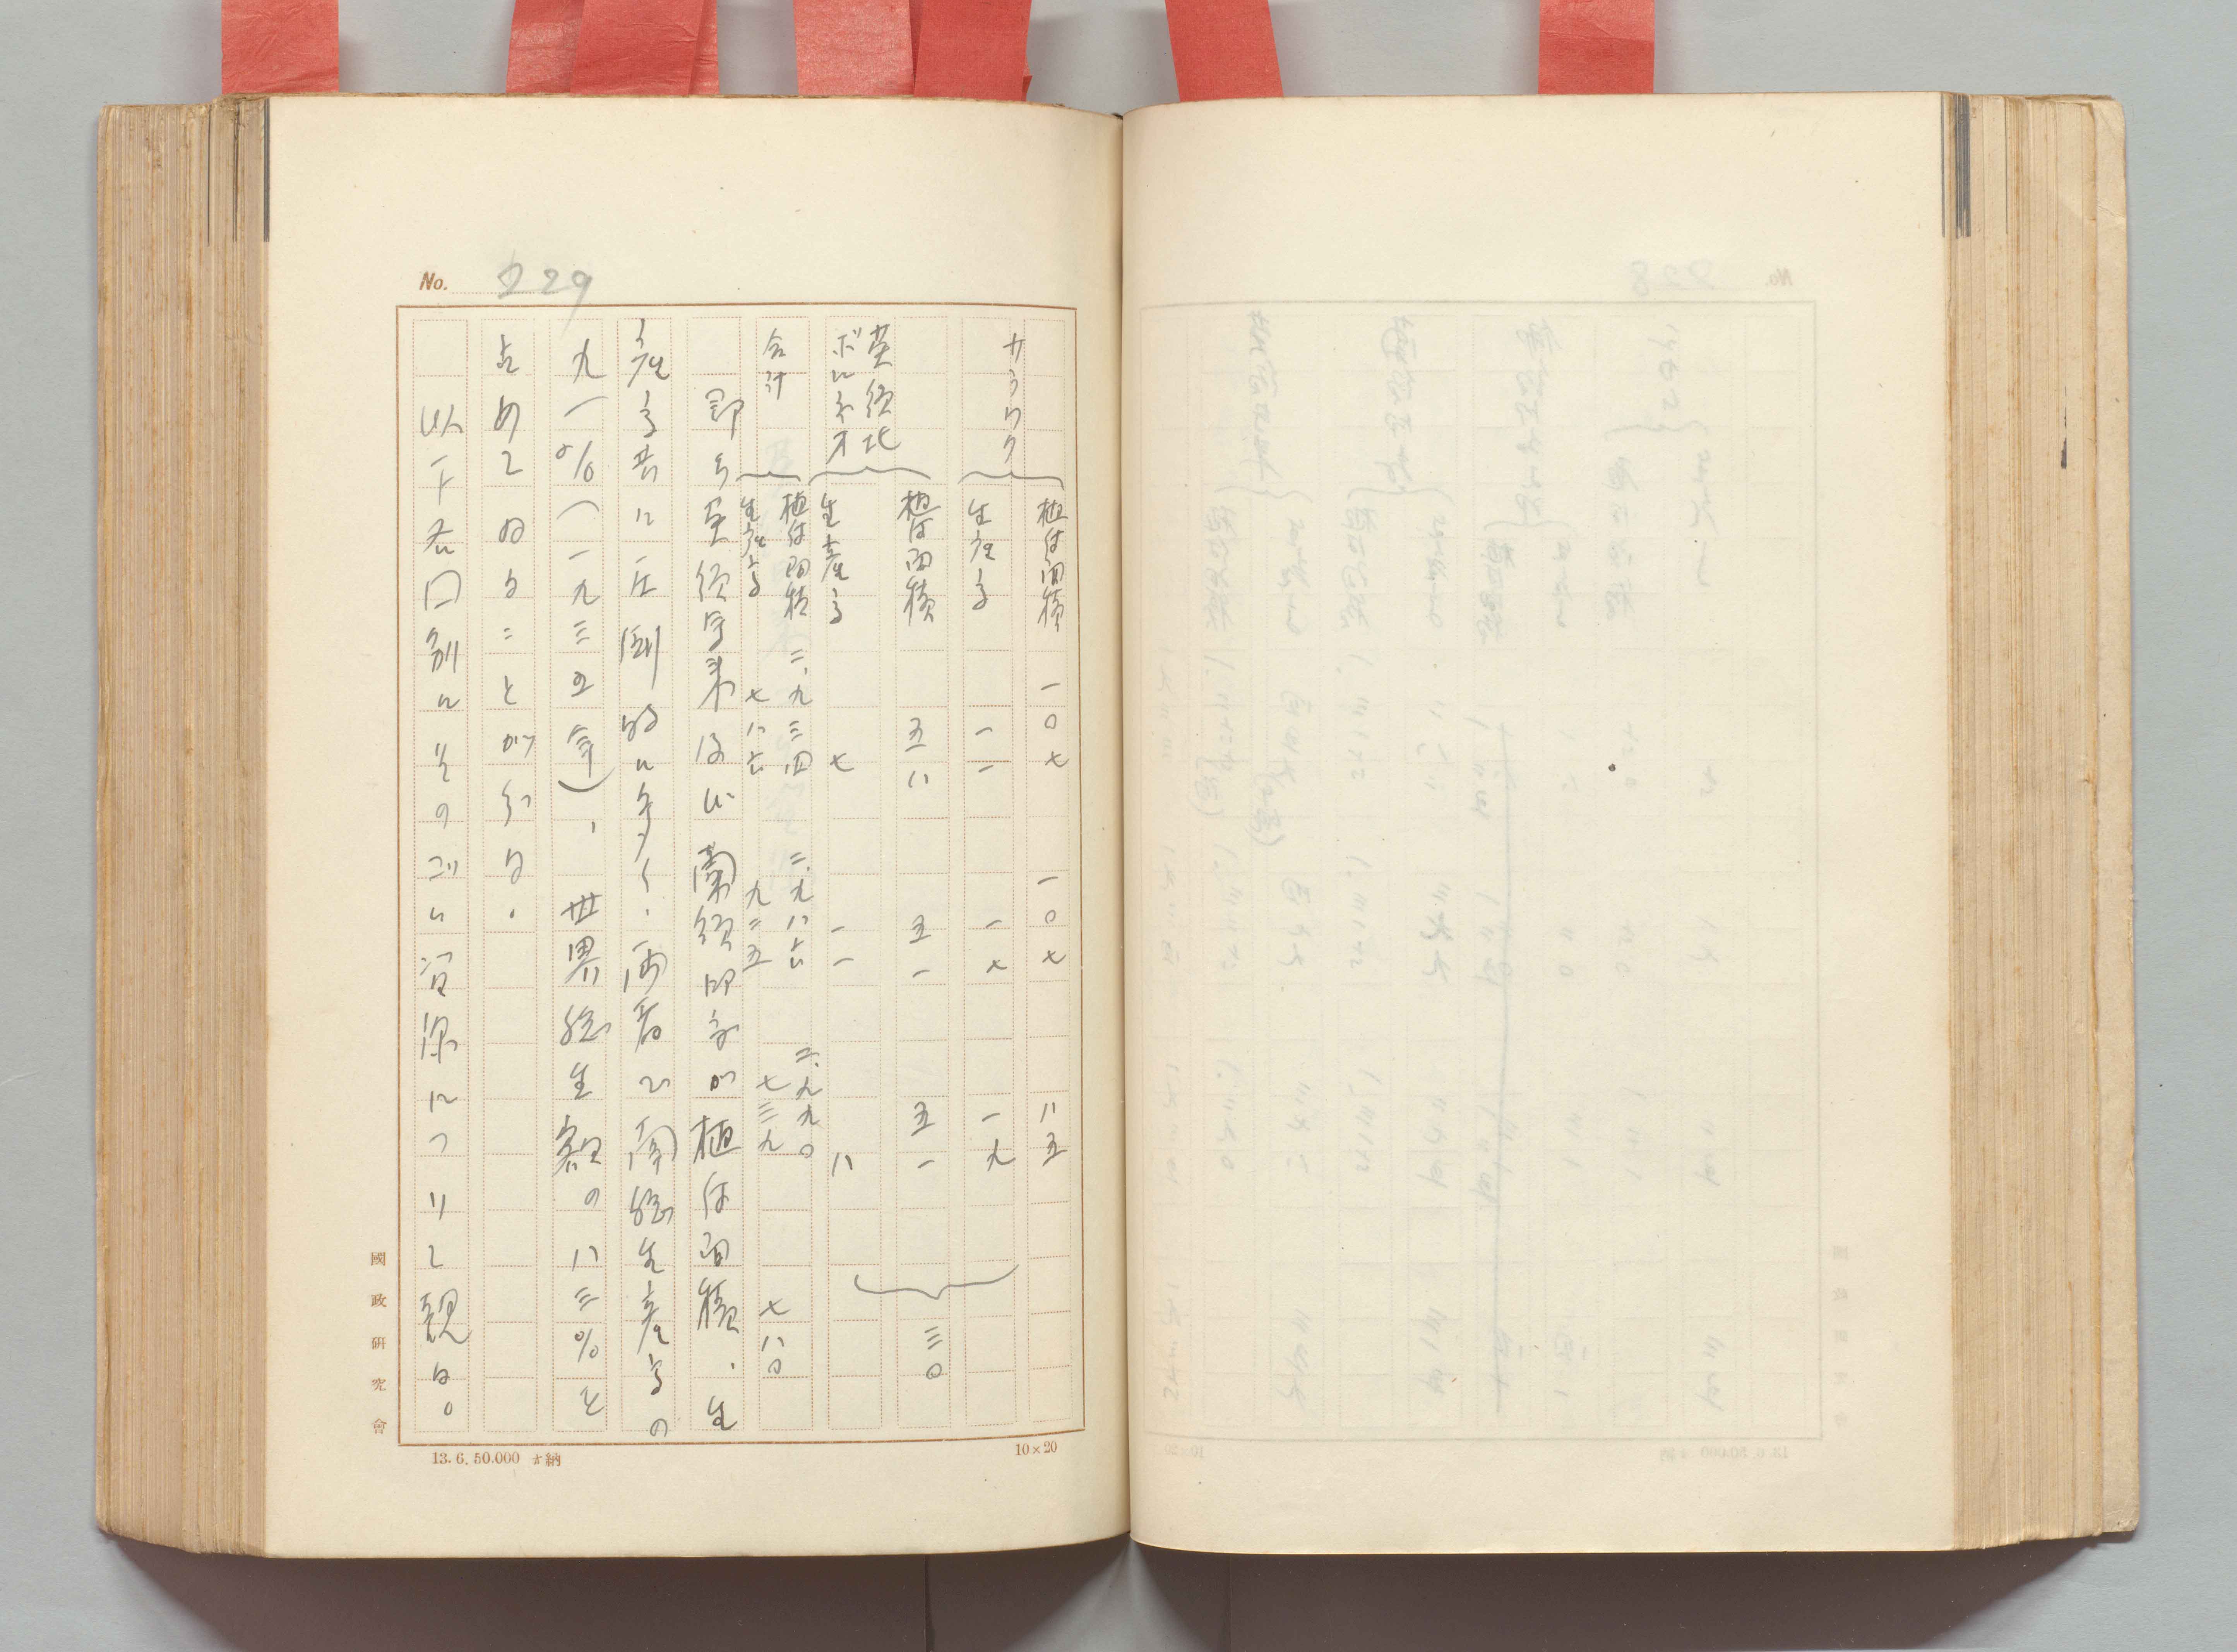 No. 229
サラワク
植付面積 一〇七 一〇七 八五
生産高 一二 一七 一九
英領北
ボルネオ
植付面積 五八 五一 五一
生産高 七 一一 八
三〇
合計
植付面積 二、九三四 二、九八六 二、九九〇
生産高 七八六 九二五 七三九 七八〇
即ち英領馬来及び蘭領印度が植付面積、生
産高共に圧倒的に多く、両者で南総生産高の
九一%(一九三五年)、世界総生産額の八三%を
占めてゐることが分る。
以下各国別にその ゴム資源について観る。
國政研究會
13.6.50.000 納
10×20